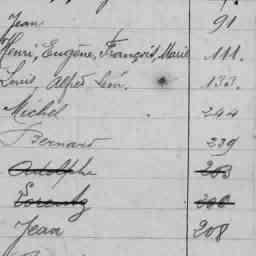 Jean 91
Henri, Eugène, François, Marie 111.
Louis Alfred Léon. 133.
Michel 244
Bernard 239
Adolphe 203
Lorentz 208
Jean 208